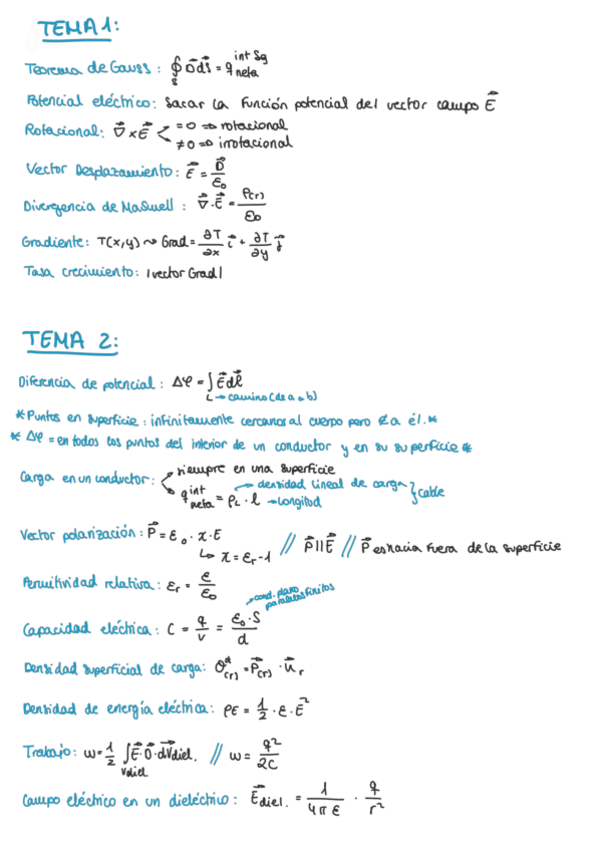 TEMA 1:
Teorema de Gauss: ∮_S D⃗ dS⃗ = q^int Sg_neta
Potencial eléctrico: Sacar la función potencial del vector campo E⃗
Rotacional: ∇⃗ × E⃗ < = 0 ⇒ rotacional
≠ 0 ⇒ irrotacional
Vector Desplazamiento: E⃗ = D⃗/ε₀
Divergencia de Maswell: ∇⃗·E⃗ = ρ(r)/ε₀
Gradiente: T(x,y) ⤳ Grad = ∂T/∂x i⃗ + ∂T/∂y j⃗
Tasa crecimiento: |vector Grad|
TEMA 2:
Diferencia de potencial: Δφ = ∫ E⃗ dl⃗
L → camino (de a a b)
* Puntos en superficie: infinitamente cercanos al cuerpo pero ∉ a él. *
* Δφ = en todos los puntos del interior de un conductor y en su superficie *
Carga en un conductor: siempre en una superficie
q^int_neta = ρ_L · l → densidad lineal de carga → longitud } Cable
Vector polarización: P⃗ = ε₀ · χ · E // P⃗ ∥ E⃗ // P⃗ es hacia fuera de la superficie
↳ χ = εr - 1
Permitividad relativa: εr = ε/ε₀
→ cond. plano paralelos finitos
Capacidad eléctrica: C = q/v = ε₀·S/d
Densidad superficial de carga: σ^d_(r) = P⃗(r) · u⃗r
Densidad de energía eléctrica: ρE = 1/2 · ε · E⃗²
Trabajo: w = 1/2 ∫_Vdiel E⃗·D⃗·dVdiel. // w = q²/2C
Campo eléctrico en un dieléctrico: E⃗diel. = 1/4πε · q/r²